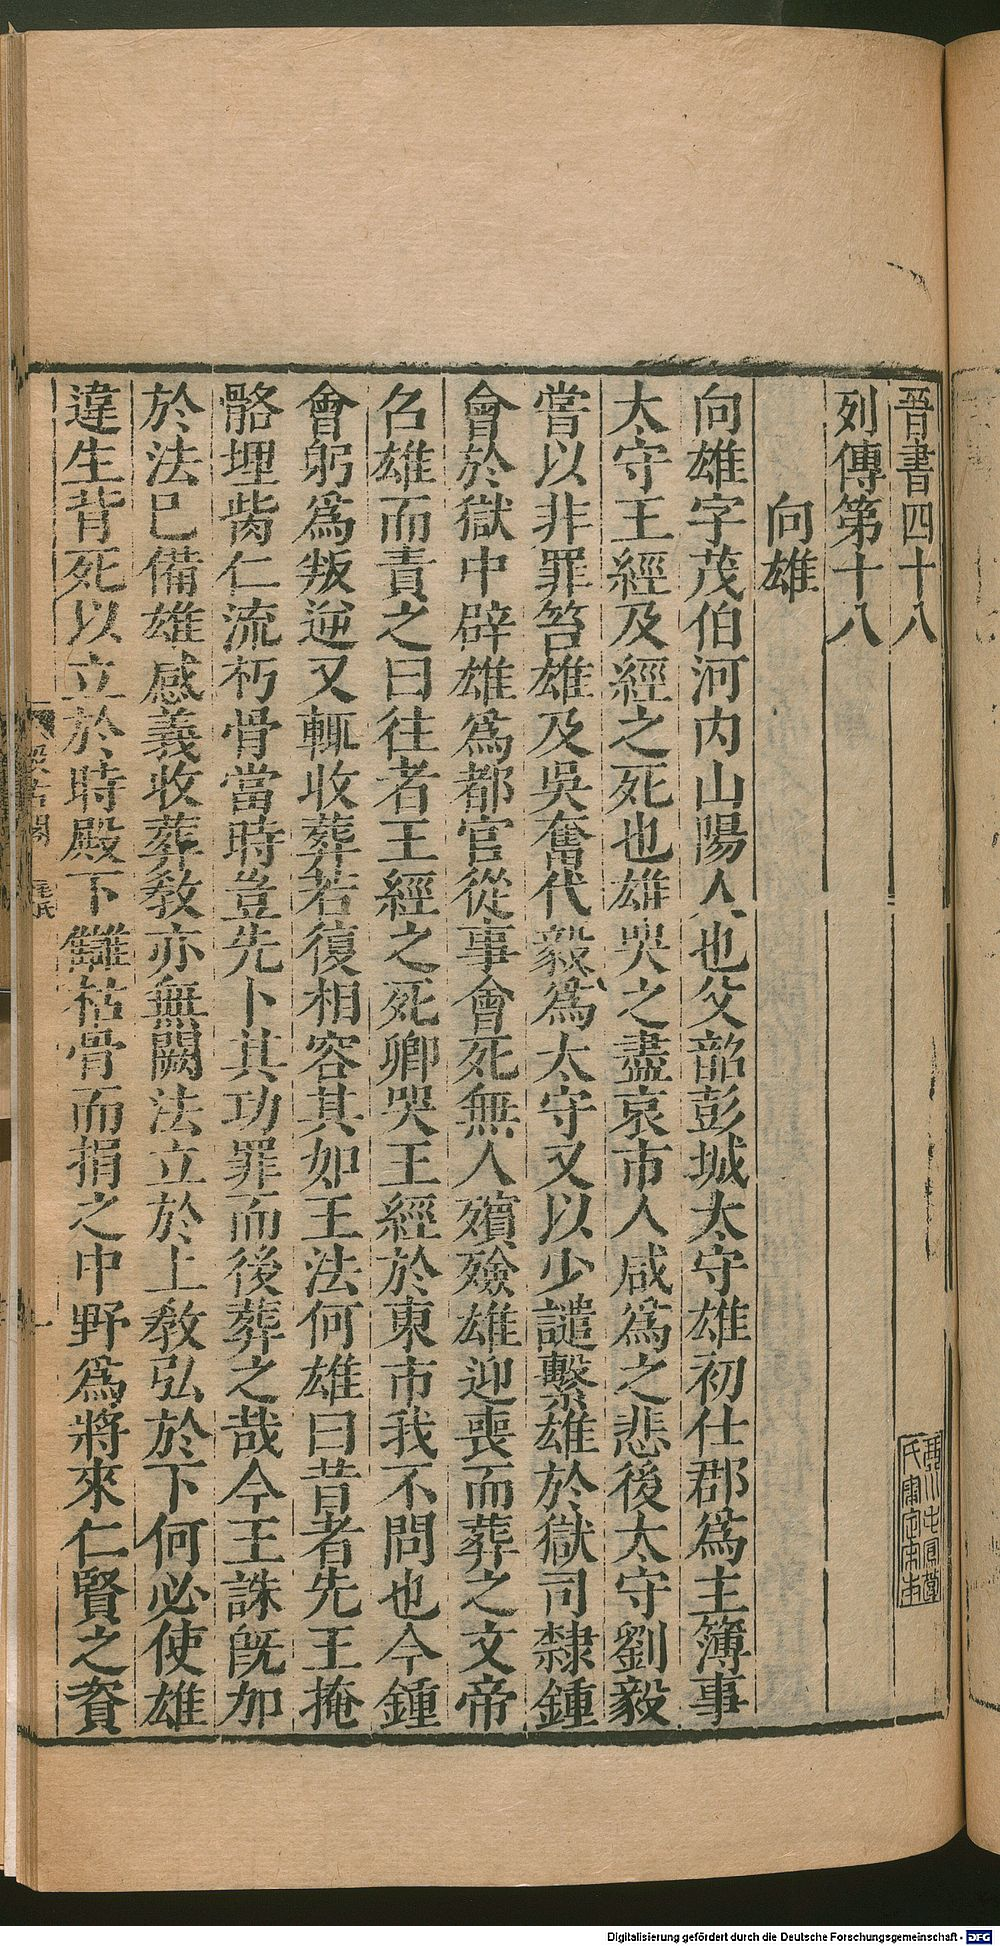 晉書四十八
列傳第十八
向雄
向雄字茂伯河内山陽人也父韶彭城太守雄初仕郡爲主簿事
太守王經及經之死也雄哭之盡哀市人咸爲之悲後太守劉毅
嘗以非罪笞雄及吳奮代毅爲太守又以少譴繫雄於獄司隸鍾
會於獄中辟雄爲都官從事會死無人殯殮雄迎喪而葬之文帝
召雄而責之曰往者王經之死卿哭王經於東市我不問也今鍾
會躬爲叛逆又輒收葬若復相容其如王法何雄曰昔者先王掩
骼埋胔仁流朽骨當時豈先卜其功罪而後葬之哉今王誅旣加
於法已備雄感義收葬敎亦無闕法立於上敎弘於下何必使雄
違生背死以立於時殿下讎枯骨而捐之中野爲將來仁賢之資
Digitalisierung gefördert durch die Deutsche Forschungsgemeinschaft - DFG